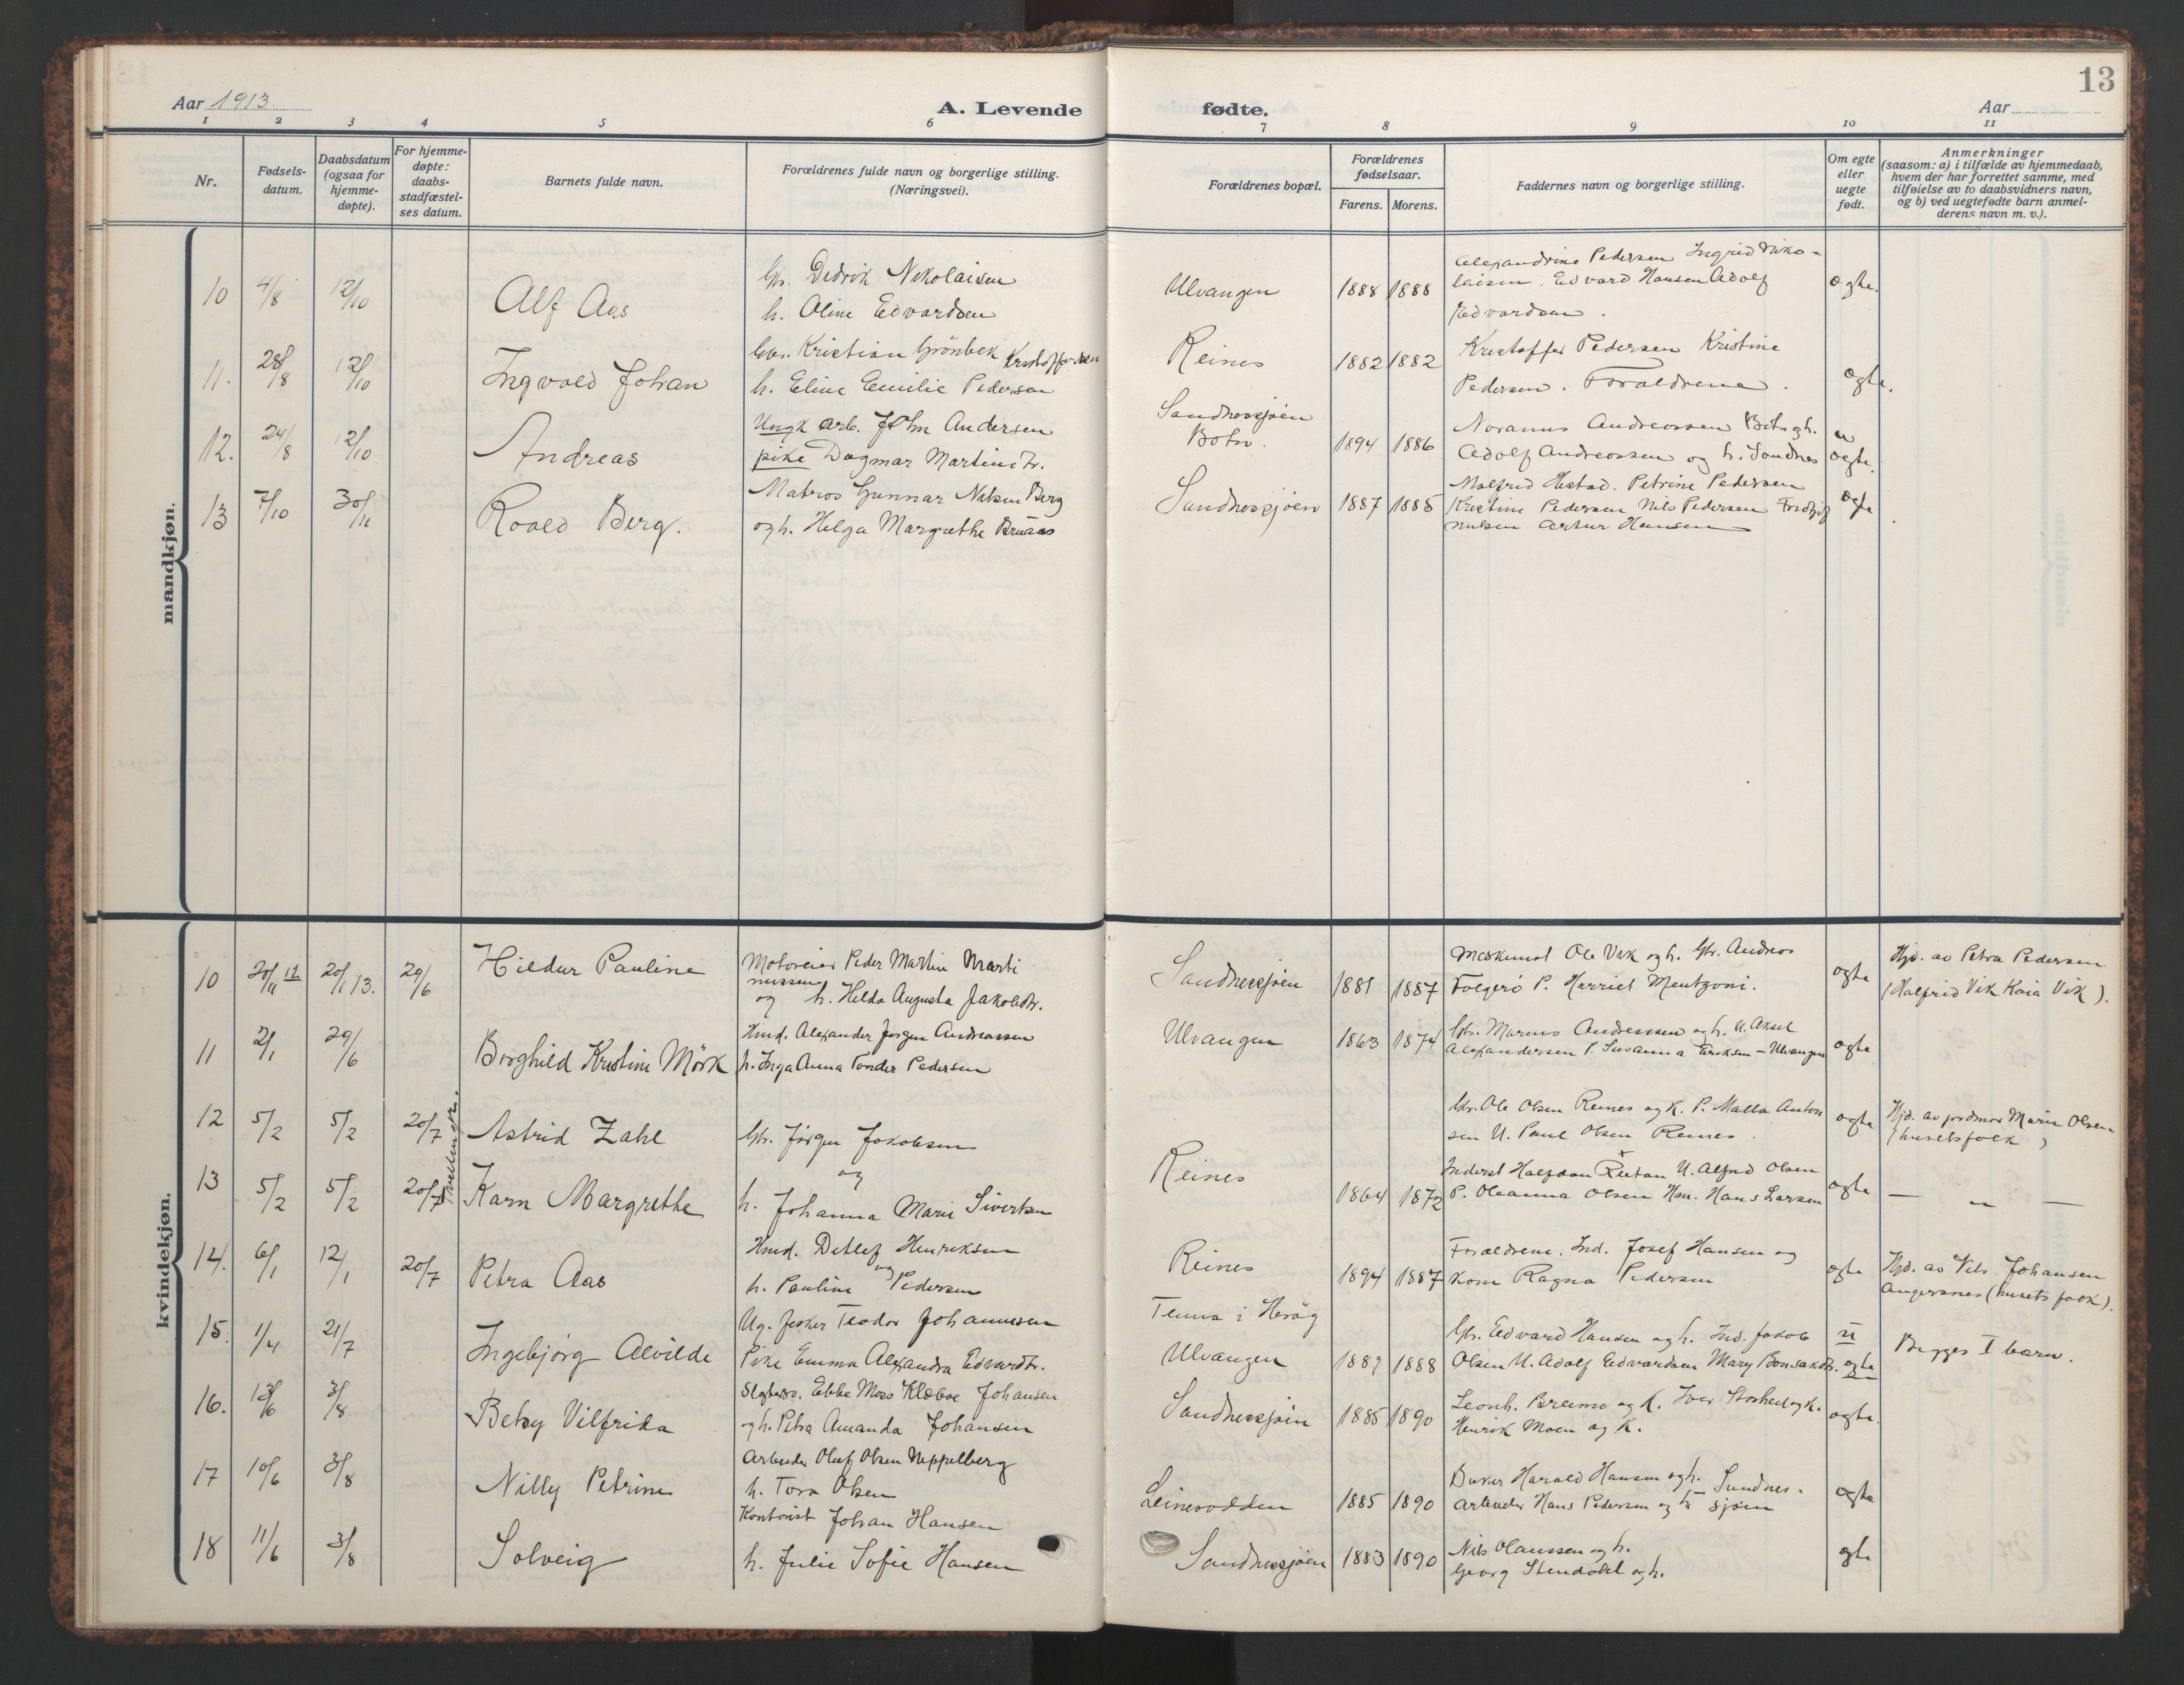 13
Aar 1913
A. Levende fødte.
Aar
1 2 3 4 5 6 7 8 9 10 11
Nr.
Fødsels-
datum.
Daabsdatum
(ogsaa for
hjemme-
døpte).
For hjemme-
døpte:
daabs-
stadfæstel-
ses datum.
Barnets fulde navn.
Forældrenes fulde navn og borgerlige stilling.
(Næringsvei).
Forældrenes bopæl.
Forældrenes
fødselsaar.
Farens. Morens.
Faddernes navn og borgerlige stilling.
Om egte
eller
uegte
født.
Anmerkninger
(saasom: a) i tilfælde av hjemmedaab,
hvem der har forrettet samme, med
tilføielse av to daabsvidners navn,
og b) ved uegtefødte barn anmel-
derens navn m. v.).
mandkjøn.
10 4/8 12/10 Alf Aas
Gbr. Dedrik Nikolaisen
h. Oline Edvardsen
Ulvangen 1888 1888
Alexandrine Pedersen Ingrid Niko-
laisen. Edvard Hansen Adolf
Edvardsen.
egte.
11. 28/8 12/10 Ingvald Johan
Gbr. Kristian Grönbek Kristoffersen
h. Eline Emilie Pedersen
Reines 1882 1882
Kristoffer Pedersen Kristine
Pedersen. Forældrene.
egte.
12. 24/8 12/10 Andreas
Ungk arb. John Andersen
pike Dagmar Martinsdr.
Sandnessjøen
Botn. 1894 1886
Andreassen Botn og h.
Adolf Andreassen og h. Sandnes
u
egte.
13 7/10 30/11 Roald Berg.
Matros Gunnar Nilsen Berg
og h. Helga Margrethe Bruaas
Sandnessjøen 1887 1885
Malfrid Hestad. Petrine Pedersen
Kristine Pedersen Nils Pedersen Fridtjof
Nilsen Artur Hansen
egte
kvindekjøn.
10 20/11 12 20/1 13. 29/6 Hildur Pauline
Motoreier Peder Martin Marti
nussen
og h. Hilda Augusta Jakobsdr.
Sandnessjøen 1881 1887
Maskinist Ole Vik og h. Gbr. Andreas
Folgerö P. Harriet Mentzoni.
egte
Hjd. av Petra Pedersen
(Halfrid Vik Kaia Vik).
11 2/1 29/6 Borghild Kristine Mörk
Hmd. Alexander Jørgen Andreassen
h. Inga Anna Tonder Pedersen
Ulvangen 1863 1874
Gbr. Marius Andreassen og h. U. Aksel
Alexandersen P. Susanna Eriksen - Ulvangen
egte
Tvillinger.
12 5/2 5/2 20/7 Astrid Zahl
Gbr. Jørgen Jakobsen
og
Gbr. Ole Olsen Reines og K. P. Malla Anton
sen U. Paul Olsen Reines.
egte
Hjd. av jordmor Marie Olsen
(husets folk)
13 5/2 5/2 20/7 Karn Margrethe
h. Johanna Marie Sivertsen
Reines 1864 1872
Inderst Halfdan U. Alfred Olsen
P. Oleanna Olsen Hm. Hans Larsen
egte
— — —
14. 6/1 12/1 20/7 Petra Aas
Hmd. Detlef Henriksen
og
h. Pauline Pedersen
Reines 1894 1887
Forældrene. Ind. Josef Hansen og
kone Ragna Pedersen
egte
Hjd. av Nils Johansen
Angersnes (husets folk).
15. 1/4 21/7 Ingebjørg Alvilde
Ug. fisker Teodor Johannesen
Pike Emma Alexandra Edvardsdr.
Tenna i Herøy
Ulvangen 1889 1888
Gbr. Edvard Hansen og h. Ind. Jakob
Olsen U. Adolf Edvardsen Mary Bonsaksdr.
u
egte
Begges I barn.
16. 13/6 3/8 Betsy Vilfrida
Ebbe Moes Klæboe Johansen
og h. Petra Amanda Johansen
Sandnessjøen 1885 1890
Leonh. Breimo og K. Iver Storheil og K.
Henrik Moen og K.
egte.
17 10/6 3/8 Nilly Petrine
Arbeider Oluf Olsen Neppelberg
h. Tora Olsen
Leinesodden 1885 1890
Harald Hansen og h. Sandnes-
Arbeider Hans Pedersen og h sjøen
egte
18 11/6 3/8 Solveig
Kontorist Johan Hansen
h. Julie Sofie Hansen
Sandnessjøen 1883 1890
Nils Olaussen og h.
Georg Stendahl og h.
egte